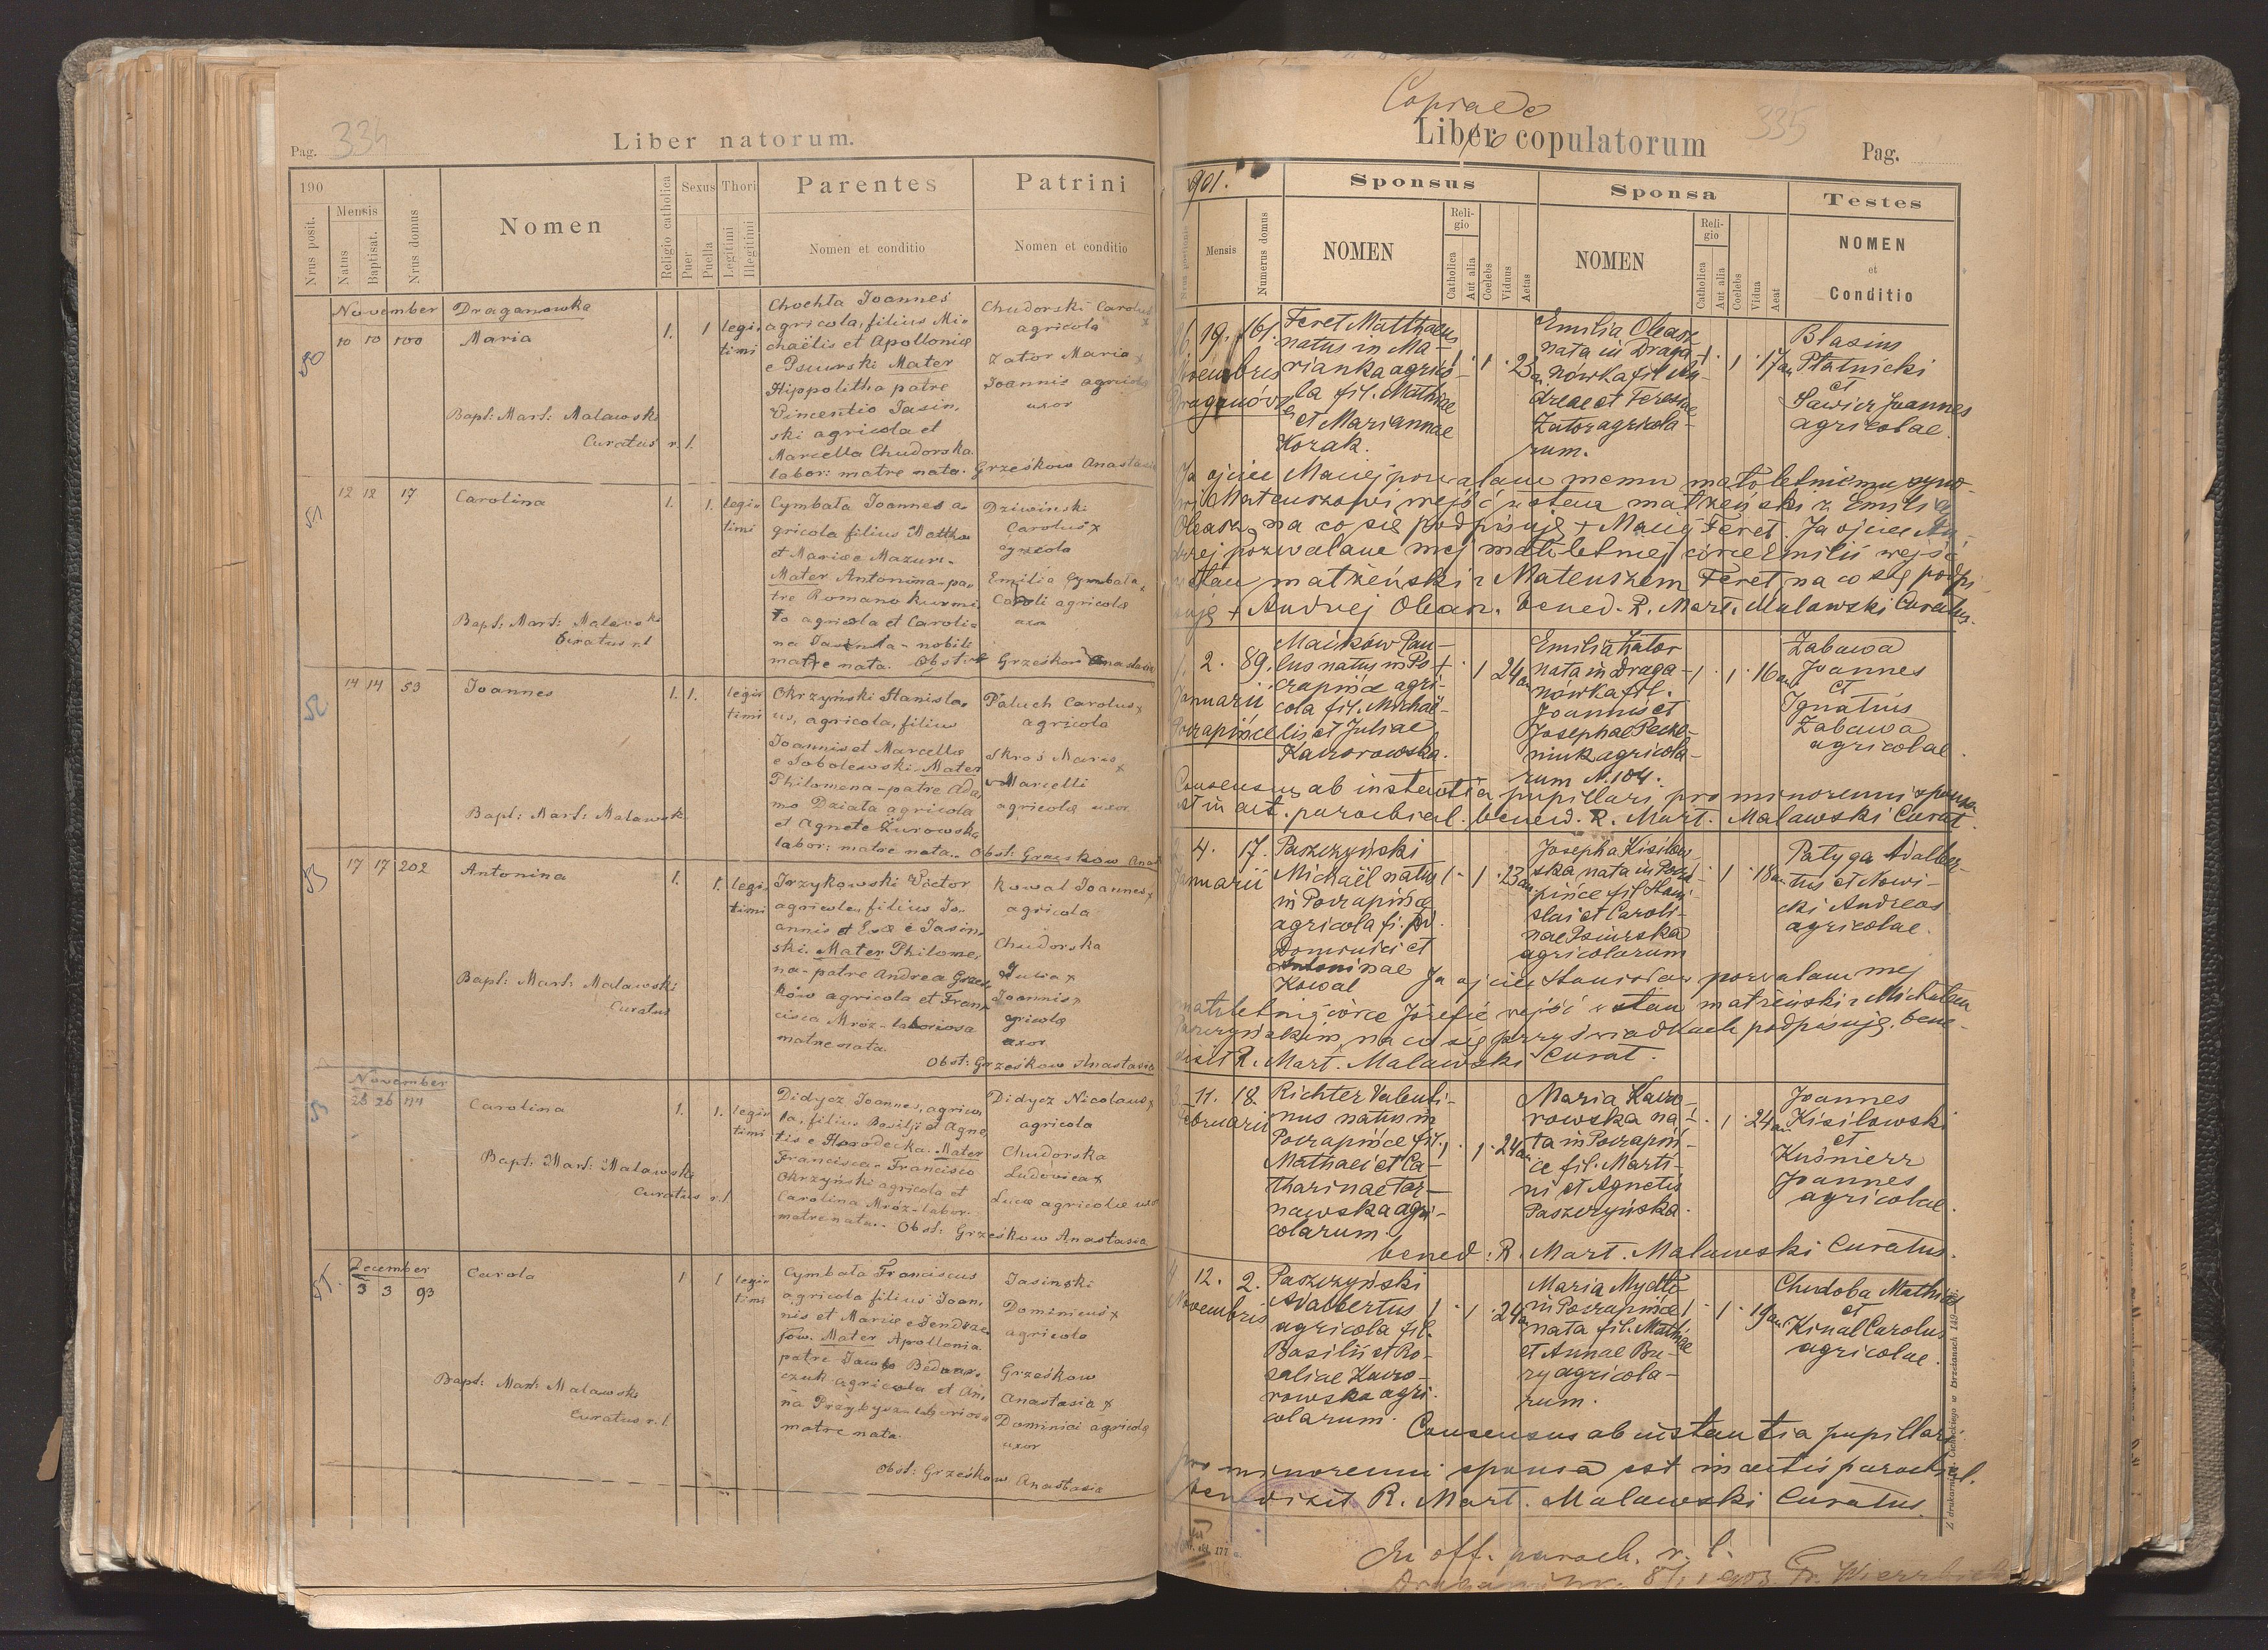 Pag. 334
Liber natorum.
190
Nrus posit.
Mensis
Natus
Baptisat.
Nrus domus
Nomen
Religio catholica
Sexus
Puer
Puella
Thori
Legitimi
Illegitimi
Parentes
Nomen et conditio
Patrini
Nomen et conditio
November Draganowka
50 10 10 100 Maria 1. 1 legi-
timi
Bapt: Mart: Malawski
Curatus r. l.
Chochta Joannes
agricola, filius Mi-
chaëlis et Apolloniæ
e Psiurski Mater
Hippolitha patre
Vincentio Jasin,
ski agricola et
Marcella Chudorska
labor: matre nata.
Chudorski Carolus
agricola x
Zator Maria x
Joannis agricolæ
uxor
Grześkow Anastasia
51 12 12 17 Carolina 1. 1. legi-
timi
Bapt: Mart: Malawski
Curatus r l
Cymbała Joannes a-
gricola filius Matthæ
et Mariæ e Mazur-
Mater Antonina-pa-
tre Romano
to agricola et Caroli-
na - nobili
matre nata. Obst:
Dziwinski
Carolus x
agricola
Emilia Cymbała
Caroli agricolæ
uxor
Grześkow Anastasia
52 14 14 53 Joannes 1. 1. legi-
timi
Bapt: Mart: Malawski
Okrzyński Stanisla-
us, agricola, filius
Joannis et Marcellæ
e Sobolewski. Mater
Philomena-patre Ada,
mo Działa agricola
et Agnete Żurowska
labor: matre nata. Obst: Grześkow Anast
Paluch Carolus x
agricola
Skroś Maria x
Marcelli
agricolæ uxor
53 17 17 202 Antonina 1. 1. legi-
timi
Bapt: Mart: Malawski
Curatus
Irzykowski Victor
agricola, filius Jo-
annis et Evæ e Jasin,
ski. Mater Philome,
na-patre Andrea Grześ
ków agricola et Fran,
cisca Mróz-laboriosa
matre nata.
Kowal Joannes x
agricola
Chudorska
Julia x
Joannis
agricolæ
uxor
Obst: Grześkow Anastasia
November
26 26 Carolina 1. 1. legi-
timi
Bapt: Mart: Malawski
Curatus r. l
Didycz Joannes, agrico,
la, filius Basilji et Agne,
tis e Horodecka. Mater
Francisca-Francisco
Okrzyński agricola et
Carolina Mróz-labor.
matre nata. Obst: Grześkow Anastasia
Didycz Nicolaus x
agricola
Chudorska
Ludovica x
Lucæ agricolæ uxor
55. December
3 3 93 Carola 1 1 legi-
timi
Bapt: Mart: Malawski
Curatus r. l.
Cymbała Franciscus
agricola filius Joan,
nis et Mariæ e Jendrze-
jow. Mater Apollonia.
patre Jacobo Bednar,
czuk agricola et An,
na Przybysz-laboriosa
matre nata.
Jasinski
Dominicus x
agricola
Grześkow
Anastasia x
Dominici agricolæ
uxor
Obst: Grześkow Anastasia
335
Liber copulatorum
Pag.
901.
Nrus positionis
Mensis
Numerus domus
Sponsus
NOMEN
Religio
Catholica
Aut alia
Coelebs
Viduus
Aetas
Sponsa
NOMEN
Religio
Catholica
Aut alia
Coelebs
Vidua
Aeat
Testes
NOMEN
et
Conditio
19. 161.
Novembris
Draganów
Feret Matthaeus
natus in Ma-
rianka agrico-
la fil. Mathiae
et Mariannae
Kozak.
1. 1. 23 an
Emilia Oleasz
nata in Draga-
nówka fil. An-
dreae et Teresiae
Zator agricola-
rum.
1. 1. 17 an
Blasius
Płatnicki
et
Sawicz Joannes
agricolae.
Ja ojciec Maciej pozwalam memu małoletniemu syno-
wi Mateuszowi wejść w stan małżeński z Emilią
Oleasz, na co się podpisuję + Maciej Feret. Ja ojciec An-
drzej pozwalam mej małoletniej córce Emilii wejść
w stan małżeński z Mateuszem Feret, na co się podpi-
suję + Andrzej Oleasz. bened. R. Mart. Malawski Curatus.
1. 2. 89.
Januarii
Poczapińce
Maćków Pau-
lus natus in Po-
czapińce agri-
cola fil. Michaë-
lis et Juliae
Kaczorowska.
1 24 an
Emilia Zator
nata in Draga-
nówka fil.
Joannis et
Josephae Pecze-
niuk agricola-
rum N. 104.
1. 1. 16 an
Zabawa
Joannes
et
Ignatius
Zabawa
agricolae.
Consensus ab instantia pupillari pro minorenni sponsa
est in act. paroechial. bened. R. Mart. Malawski Curat.
4. 17.
Januarii
Paszczyński
Michaël natus
in Poczapińce
agricola fi.
Dominici et
Antoninae
Kowal
1. 1. 23 an
Josepha Kisilow-
ska nata in Pocza-
pińce fil. Stani-
slai et Caroli-
nae Psiurska
agricolarum
1. 18 an
Patyga Adalber-
tus et Nowi-
cki Andreas
agricolae.
Ja ojciec Stanisław pozwalam mej
małoletniej córce Józefie wejść w stan małżeński z Michałem
Paszczyńskim, na co się przy świadkach podpisuję. bene-
dixit R. Mart. Malawski Curat.
3. 11. 18.
Februarii
Richter Valenti-
nus natus in
Poczapińce fil.
Mathaei et Ca-
tharinae Tar-
nawska agri-
colarum.
1. 1. 24 an
Maria Kaczo-
rowska na-
ta in Poczapiń-
ce fil. Marti-
ni et Agnetis
Paszczyńska.
1. 1. 24 an
Joannes
Kisilowski
et
Kuśnierz
Joannes
agricolae.
bened. R. Mart. Malawski Curatus.
4 12. 2.
Novembris
Paszczyński
Adalbertus
agricola fil.
Basilii et Ro-
saliae Kaczo-
rowska agri-
colarum.
1. 1. 24 an
Maria Mydło
in Poczapińce
nata fil. Mathiae
et Annae Bu-
ry agricola-
rum.
1. 1. 19 an
Chudoba Mathias
et
Kinal Carolus
agricolae.
Consensus ab instantia pupillari
pro minorenni sponsa est in actis paroechial.
benedixit R. Mart. Malawski Curatus.
Ex off. paroch. r. l.